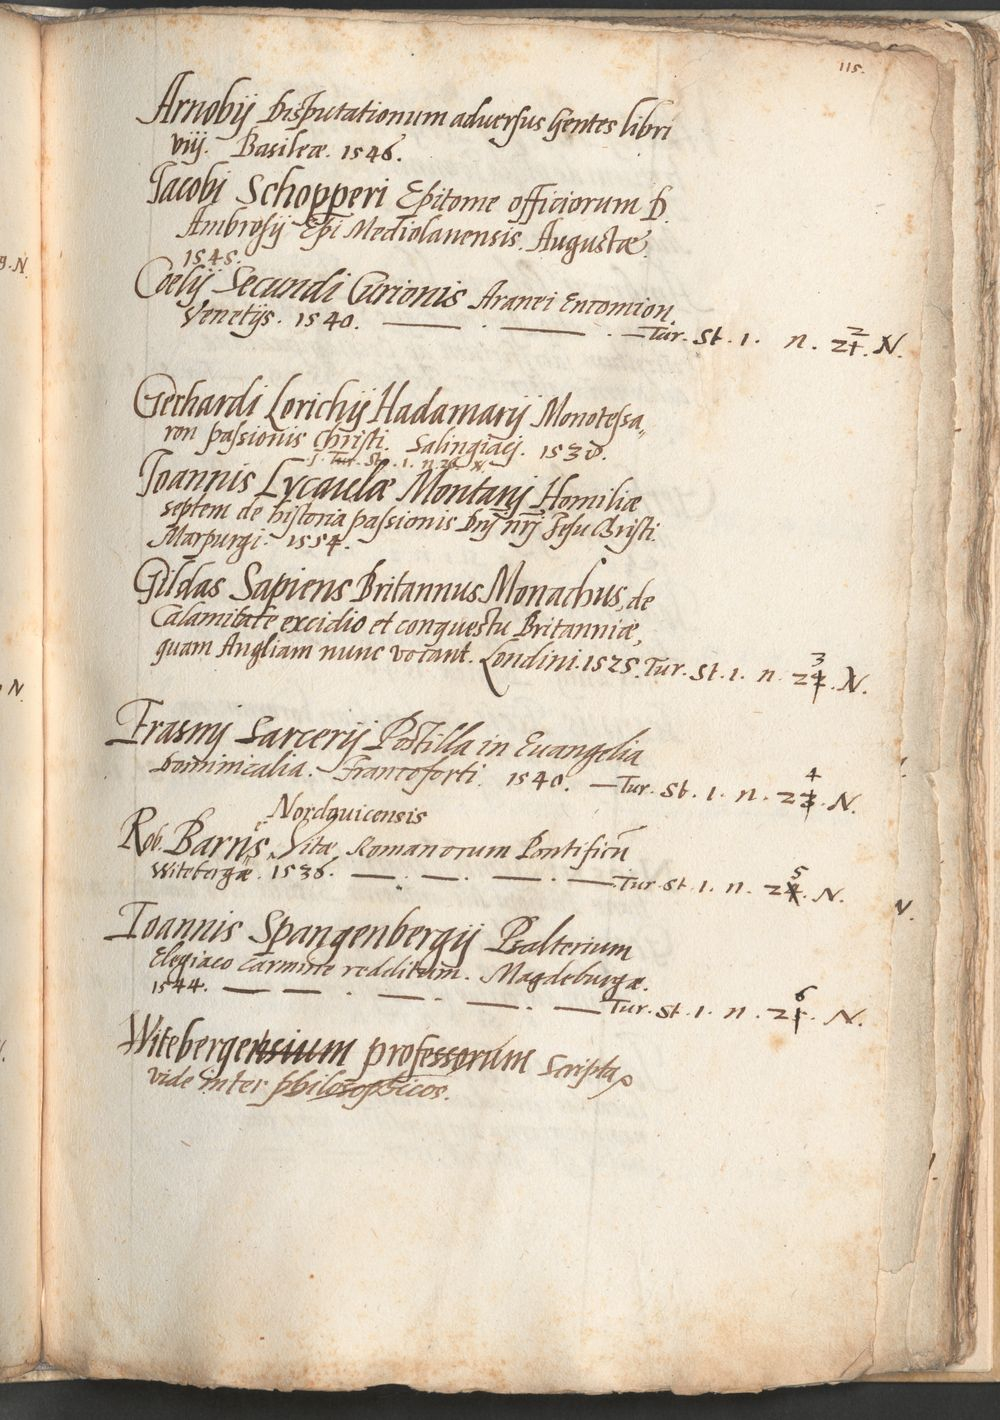 115.
Arnobij Disputationum aduersus Gentes libri
viij. Basileæ. 1546.
Jacobi Schopperi Epitome officiorum D.
Ambrosij Epi Mediolanensis. Augustæ.
1545.
Coelij Secundi Curionis Aranei Encomion.
Venetijs. 1540. — . — . — Tur. St. 1. n. 21. 2 N.
Gerhardi Lorichij Hadamarij Monotessa„
ron passionis Christi. Salingiacj. 1538.
Tur. St. 1. n.
Joannis Lycaulæ Montanj Homiliæ
septem de historia passionis Dnj nrj Jesu Christi.
Marpurgi. 1554.
Gildas Sapiens Britannus Monachus, de
Calamitate excidio et conquestu Britanniæ,
quam Angliam nunc vocant. Londini. 1525. Tur. St. 1. n. 22. 3 N.
Erasmj Sarcerij Postilla in Euangelia
Dominicalia. Francoforti. 1540. — Tur. St. 1. n. 23. 4 N.
Nordquicensis
Rob. Barns Vitæ Romanorum Pontificū
Witebergæ. 1536. — . — . — . — Tur. St. 1. n. 24. 5 N.
Ioannis Spangenbergij Psalterium
Elegiaco carmine redditum. Magdeburgæ.
1544. — — . — . — . — Tur. St. 1. n. 25. 6 N.
Witebergensium professorum Scripta
vide inter philosophicos.